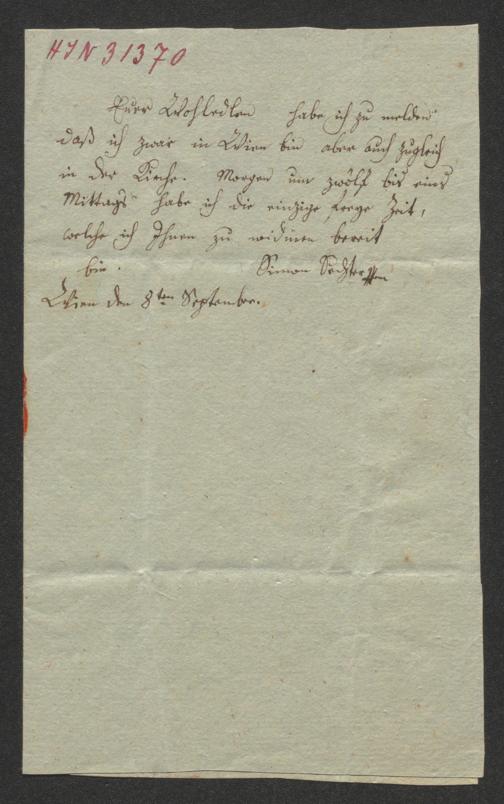 HIN 31370
Euer Wohledlen habe ich zu melden
daß ich zwar in Wien bin aber auch zugleich
in der Kirche. Morgen um zwölf bis eins
Mittags habe ich die einzige freye Zeit,
welche ich Ihnen zu widmen bereit
bin. Simon Sechter
Wien den 8ten September.